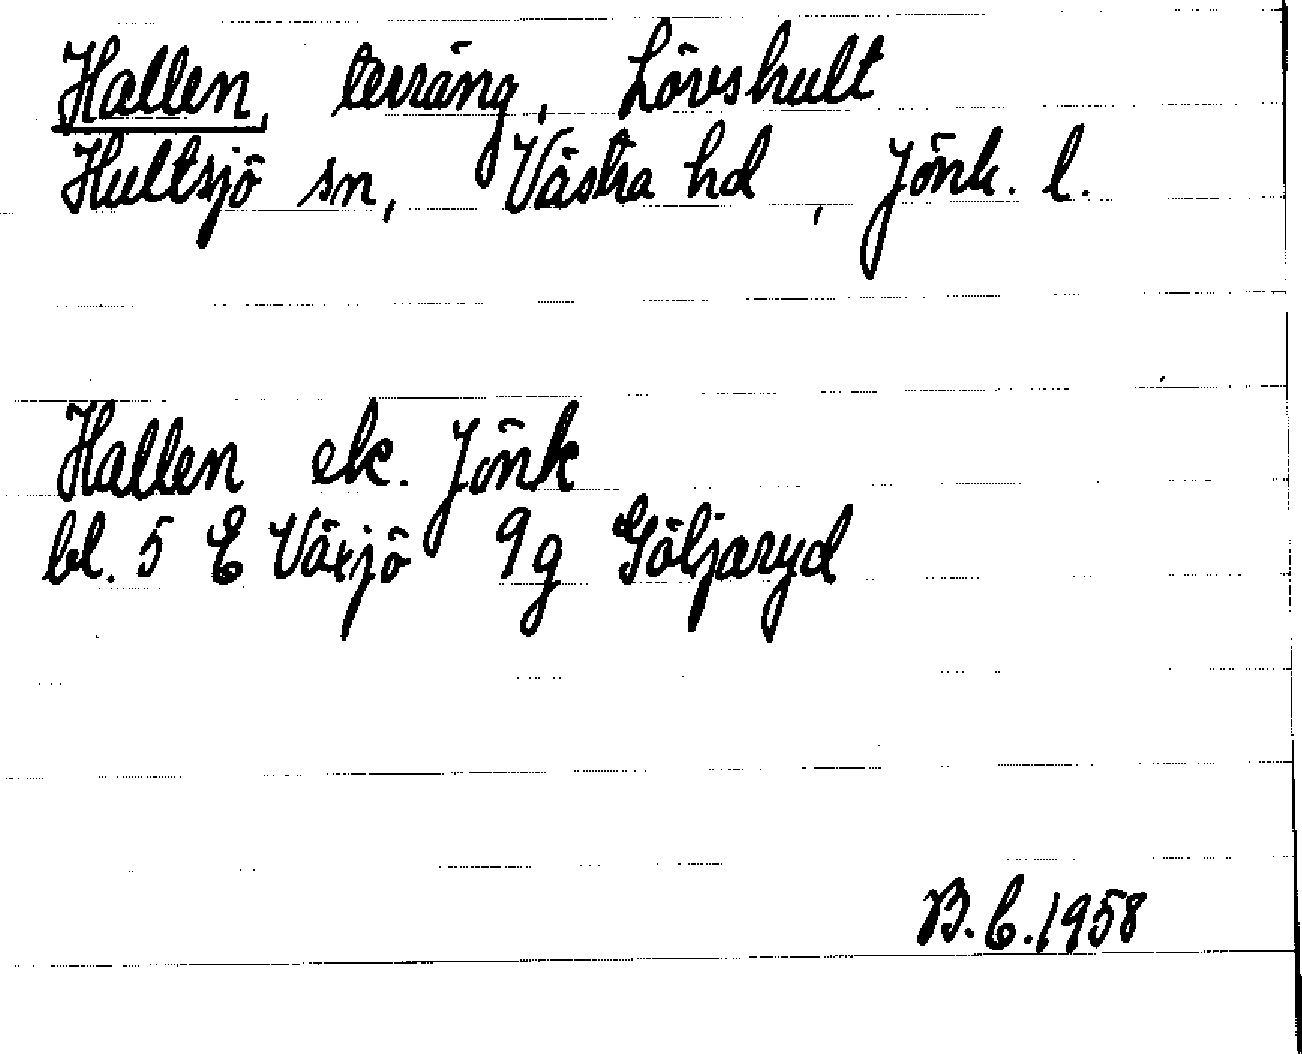 Hallen, terräng, Lövshult
Hultsjö sn, Västra hd, Jönk. l.
Hallen ek. Jönk
bl. 5 E Växjö 9g Göljaryd
B.C. 1958